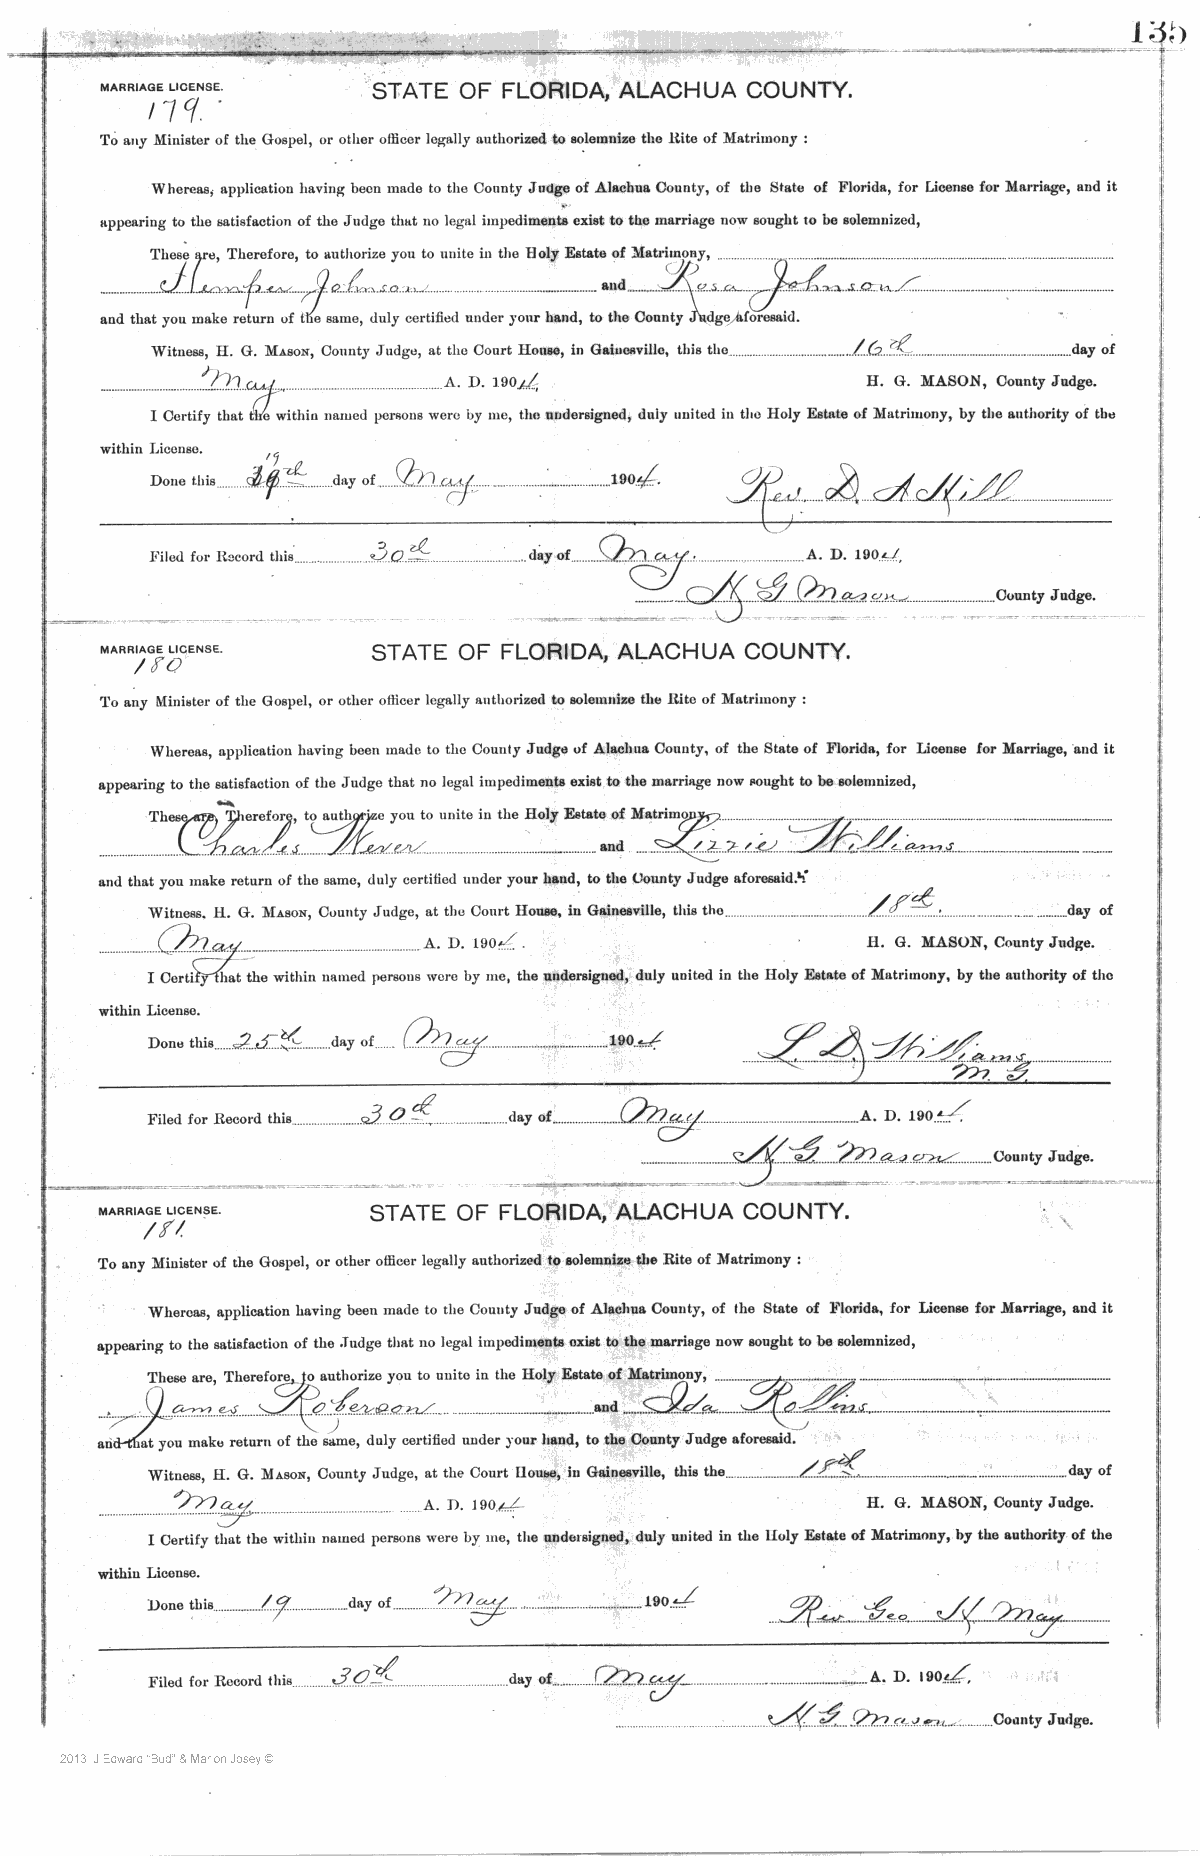 135
MARRIAGE LICENSE. STATE OF FLORIDA, ALACHUA COUNTY.
179.
To any Minister of the Gospel, or other officer legally authorized to solemnize the Rite of Matrimony :
Whereas, application having been made to the County Judge of Alachua County, of the State of Florida, for License for Marriage, and it
appearing to the satisfaction of the Judge that no legal impediments exist to the marriage now sought to be solemnized,
These are, Therefore, to authorize you to unite in the Holy Estate of Matrimony,
Hemper Johnson and Rosa Johnson
and that you make return of the same, duly certified under your hand, to the County Judge aforesaid.
Witness, H. G. MASON, County Judge, at the Court House, in Gainesville, this the 16th day of
May A. D. 1904, H. G. MASON, County Judge.
I Certify that the within named persons were by me, the undersigned, duly united in the Holy Estate of Matrimony, by the authority of the
within License.
19
Done this 19th day of May 1904. Rev. D. A Hill
Filed for Record this 30th day of May. A. D. 1904,
H G Mason County Judge.
MARRIAGE LICENSE. STATE OF FLORIDA, ALACHUA COUNTY.
180
To any Minister of the Gospel, or other officer legally authorized to solemnize the Rite of Matrimony :
Whereas, application having been made to the County Judge of Alachua County, of the State of Florida, for License for Marriage, and it
appearing to the satisfaction of the Judge that no legal impediments exist to the marriage now sought to be solemnized,
These are, Therefore, to authorize you to unite in the Holy Estate of Matrimony,
Charles Wever and Lizzie Williams
and that you make return of the same, duly certified under your hand, to the County Judge aforesaid.
Witness, H. G. MASON, County Judge, at the Court House, in Gainesville, this the 18th. day of
May A. D. 1904. H. G. MASON, County Judge.
I Certify that the within named persons were by me, the undersigned, duly united in the Holy Estate of Matrimony, by the authority of the
within License.
Done this 25th day of May 1904. L. D. Williams
M. G.
Filed for Record this 30th day of May A. D. 1904.
H. G. Mason County Judge.
MARRIAGE LICENSE. STATE OF FLORIDA, ALACHUA COUNTY.
181.
To any Minister of the Gospel, or other officer legally authorized to solemnize the Rite of Matrimony :
Whereas, application having been made to the County Judge of Alachua County, of the State of Florida, for License for Marriage, and it
appearing to the satisfaction of the Judge that no legal impediments exist to the marriage now sought to be solemnized,
These are, Therefore, to authorize you to unite in the Holy Estate of Matrimony,
James Roberson and Ida Rollins
and that you make return of the same, duly certified under your hand, to the County Judge aforesaid.
Witness, H. G. MASON, County Judge, at the Court House, in Gainesville, this the 18th day of
May A. D. 1904 H. G. MASON, County Judge.
I Certify that the within named persons were by me, the undersigned, duly united in the Holy Estate of Matrimony, by the authority of the
within License.
Done this 19 day of May 1904 Rev. Geo H May
Filed for Record this 30th day of May A. D. 1904.
H. G. Mason County Judge.
2013 J Edward "Bud" & Marion Josey ©